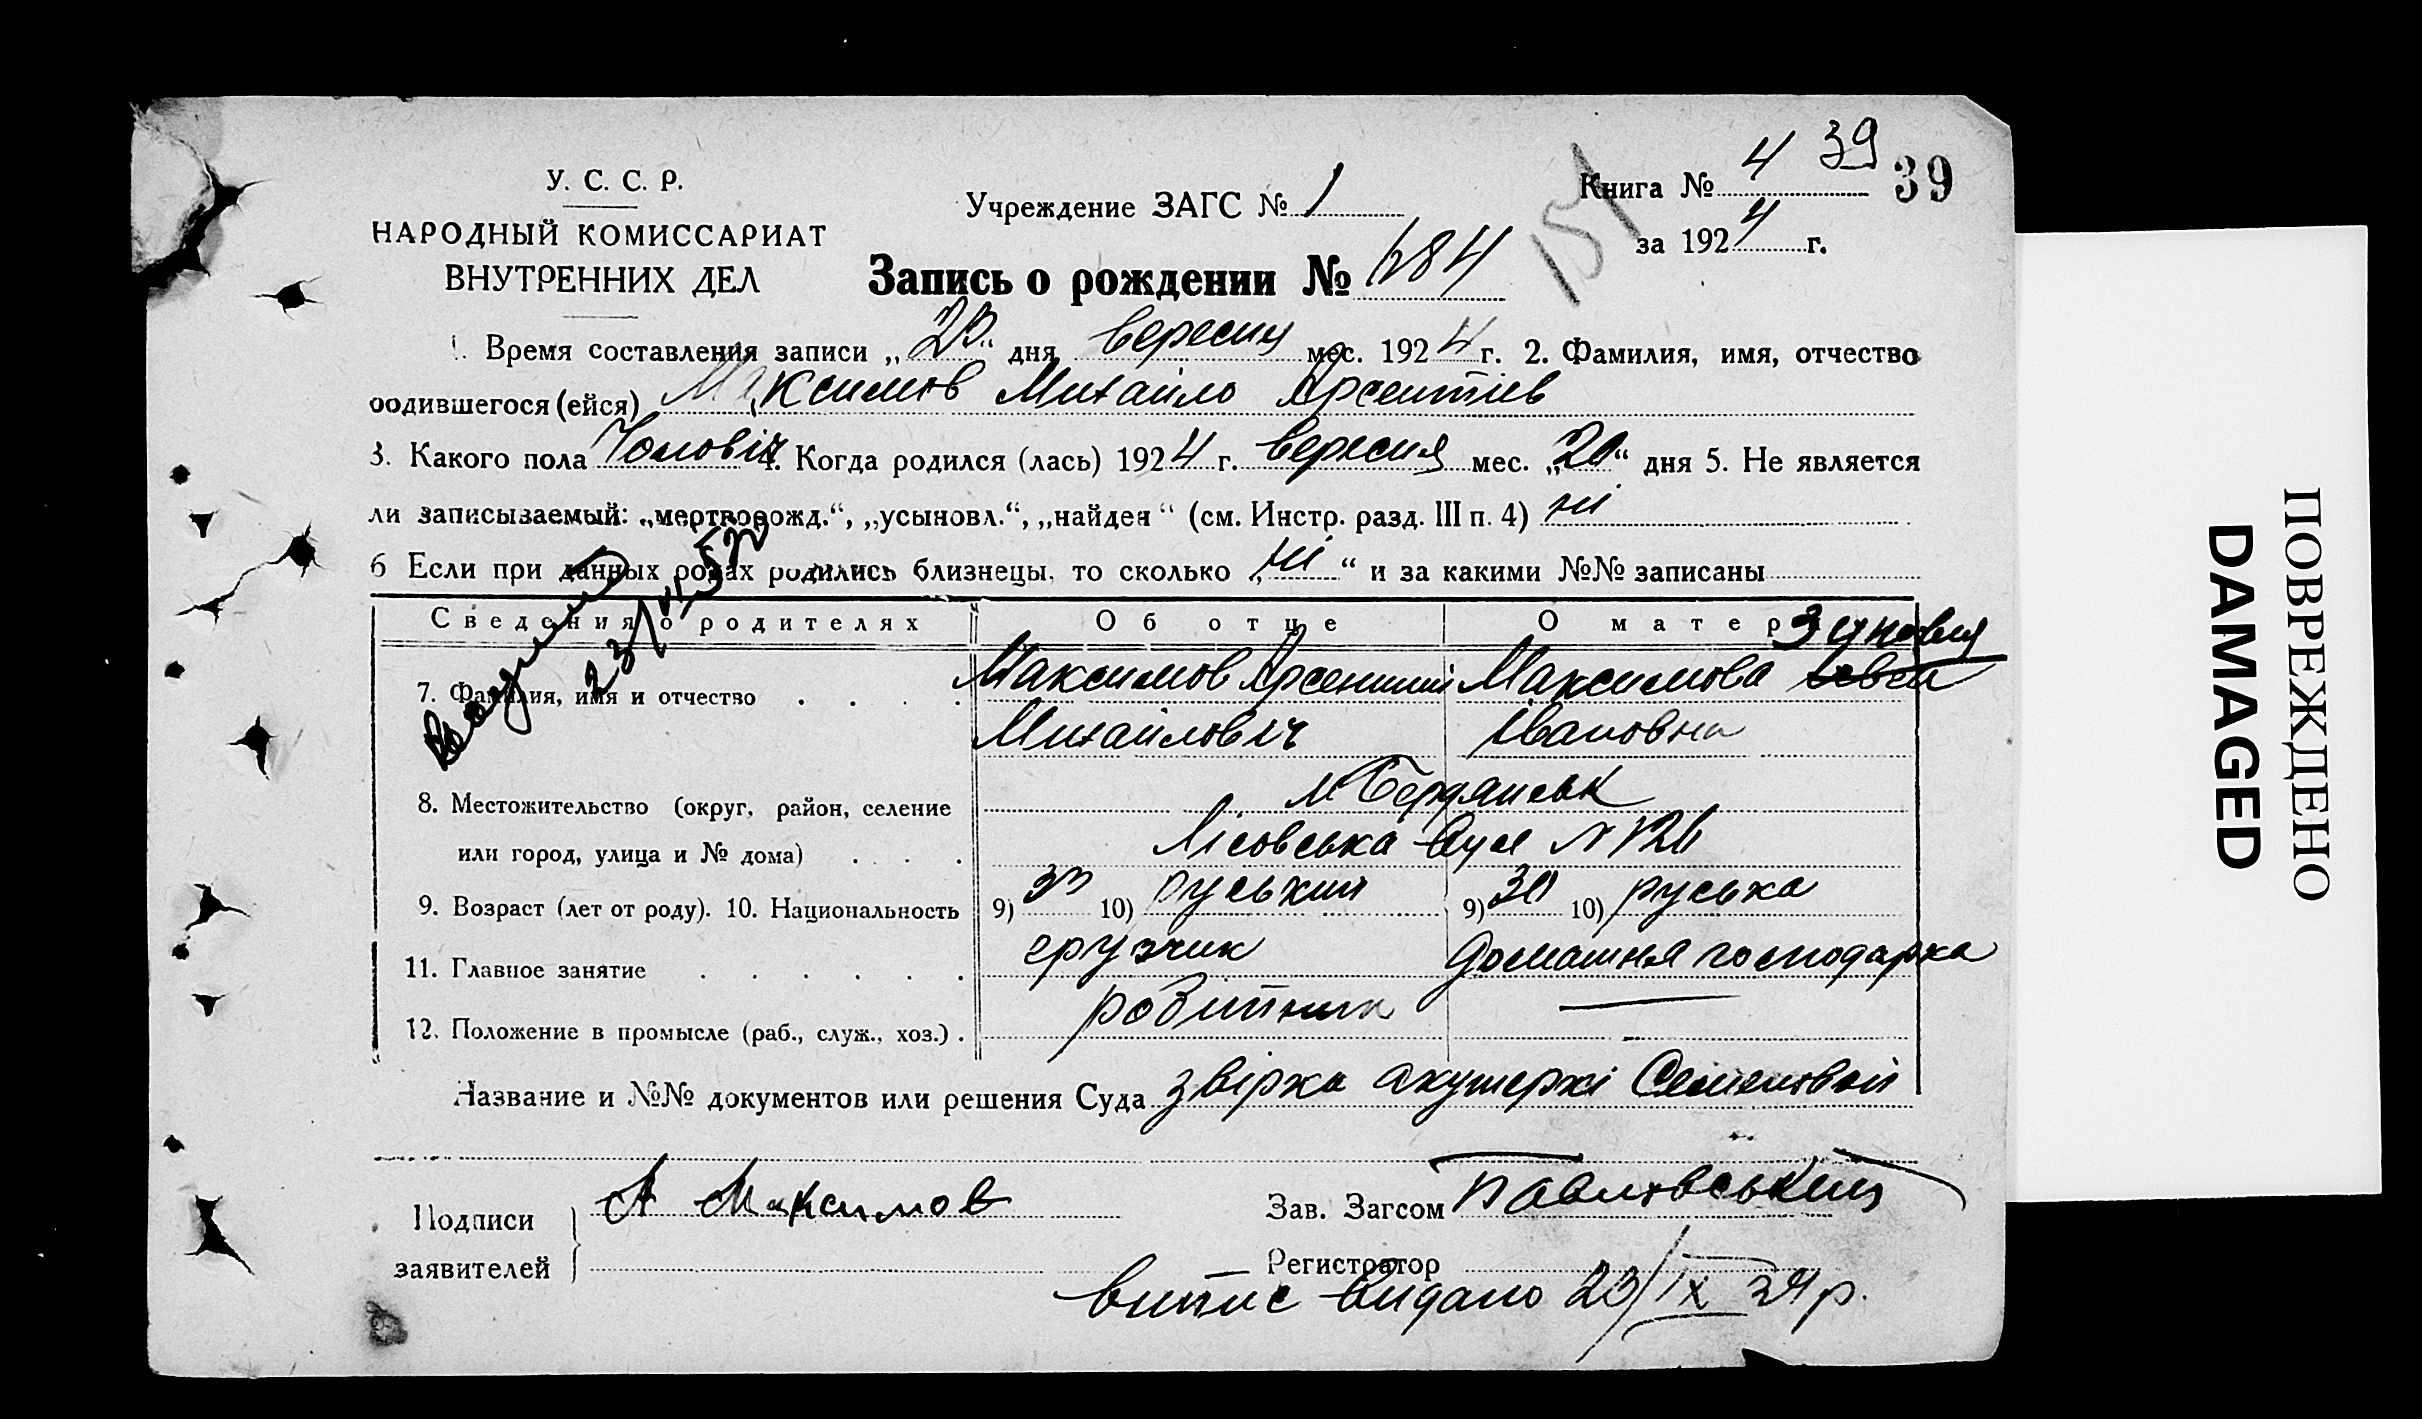 39
У. С. С. Р.
Учреждение ЗАГС № 1
Книга № 4 39
151
НАРОДНЫЙ КОМИССАРИАТ
ВНУТРЕННИХ ДЕЛ
за 1924 г.
Запись о рождении № 684
1. Время составления записи „23“ дня вересня мес. 1924 г. 2. Фамилия, имя, отчество
родившегося (ейся) Максимов Михайло Арсентіев
3. Какого пола Чоловіч 4. Когда родился (лась) 1924 г. вересня мес. „20“ дня 5. Не является
ли записываемый: „мертворожд.“, „усыновл.“, „найден“ (см. Инстр. разд. III п. 4) ні
6 Если при данных родах родились близнецы, то сколько „ні“ и за какими №№ записаны
Сведения о родителях Об отце О матери
7. Фамилия, имя и отчество Максимов Арсентий Максимова
Михайлович Івановна
8. Местожительство (округ, район, селение м Бердянськ
или город, улица и № дома) Лісовська вул №126
9. Возраст (лет от роду). 10. Национальность 9) 33 10) руський 9) 30 10) руська
11. Главное занятие грузчик домашня господарка
12. Положение в промысле (раб., служ., хоз.) робітник —
Название и №№ документов или решения Суда звірка акушеркі Семеновой
Подписи А Максимов Зав. Загсом Павловський
заявителей Регистратор
випис видано 23/IX 24 р.
ПОВРЕЖДЕНО
DAMAGED